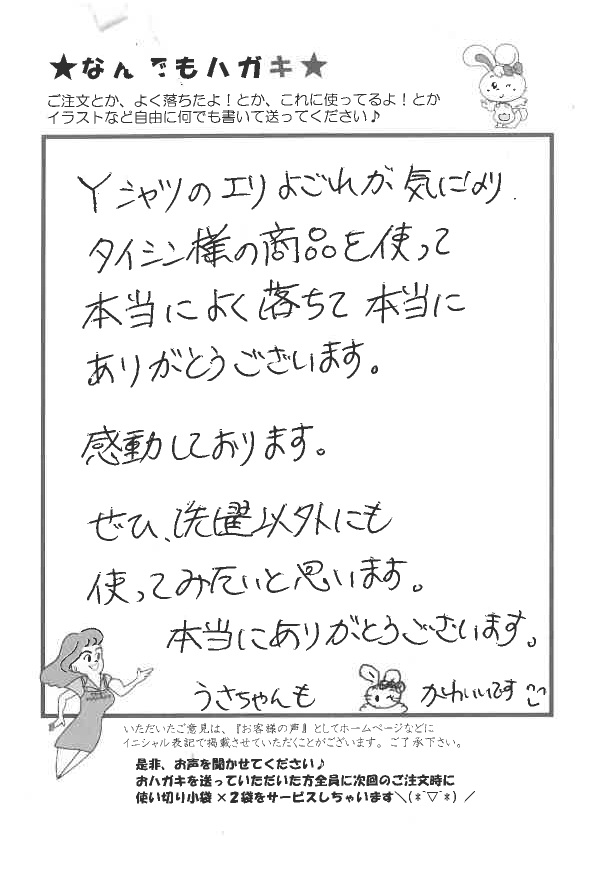 ★なんでもハガキ★
ご注文とか、よく落ちたよ！とか、これに使ってるよ！とか
イラストなど自由に何でも書いて送ってください♪
Yシャツのエリよごれが気になり
タイシン様の商品を使って
本当によく落ちて本当に
ありがとうございます。
感動しております。
ぜひ、洗濯以外にも
使ってみたいと思います。
本当にありがとうございます。
うさちゃんも かわいいです
いただいたご意見は、『お客様の声』としてホームページなどに
イニシャル表記で掲載させていただくことがございます。ご了承下さい。
是非、お声を聞かせてください♪
おハガキを送っていただいた方全員に次回のご注文時に
使い切り小袋×2袋をサービスしちゃいます＼(*ˊ▽ˋ*)／